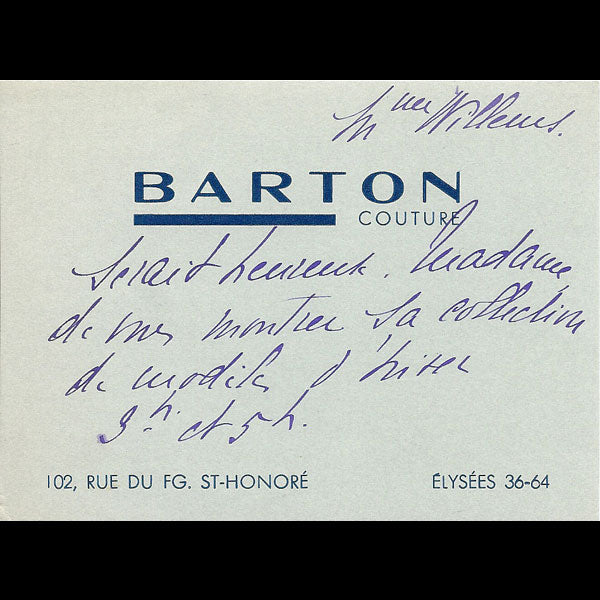 Mme Willems.
BARTON
COUTURE
serait heureux, Madame
de vous montrer sa collection
de modèles d'hiver
3h. et 5h.
102, RUE DU FG. ST-HONORÉ
ÉLYSÉES 36-64